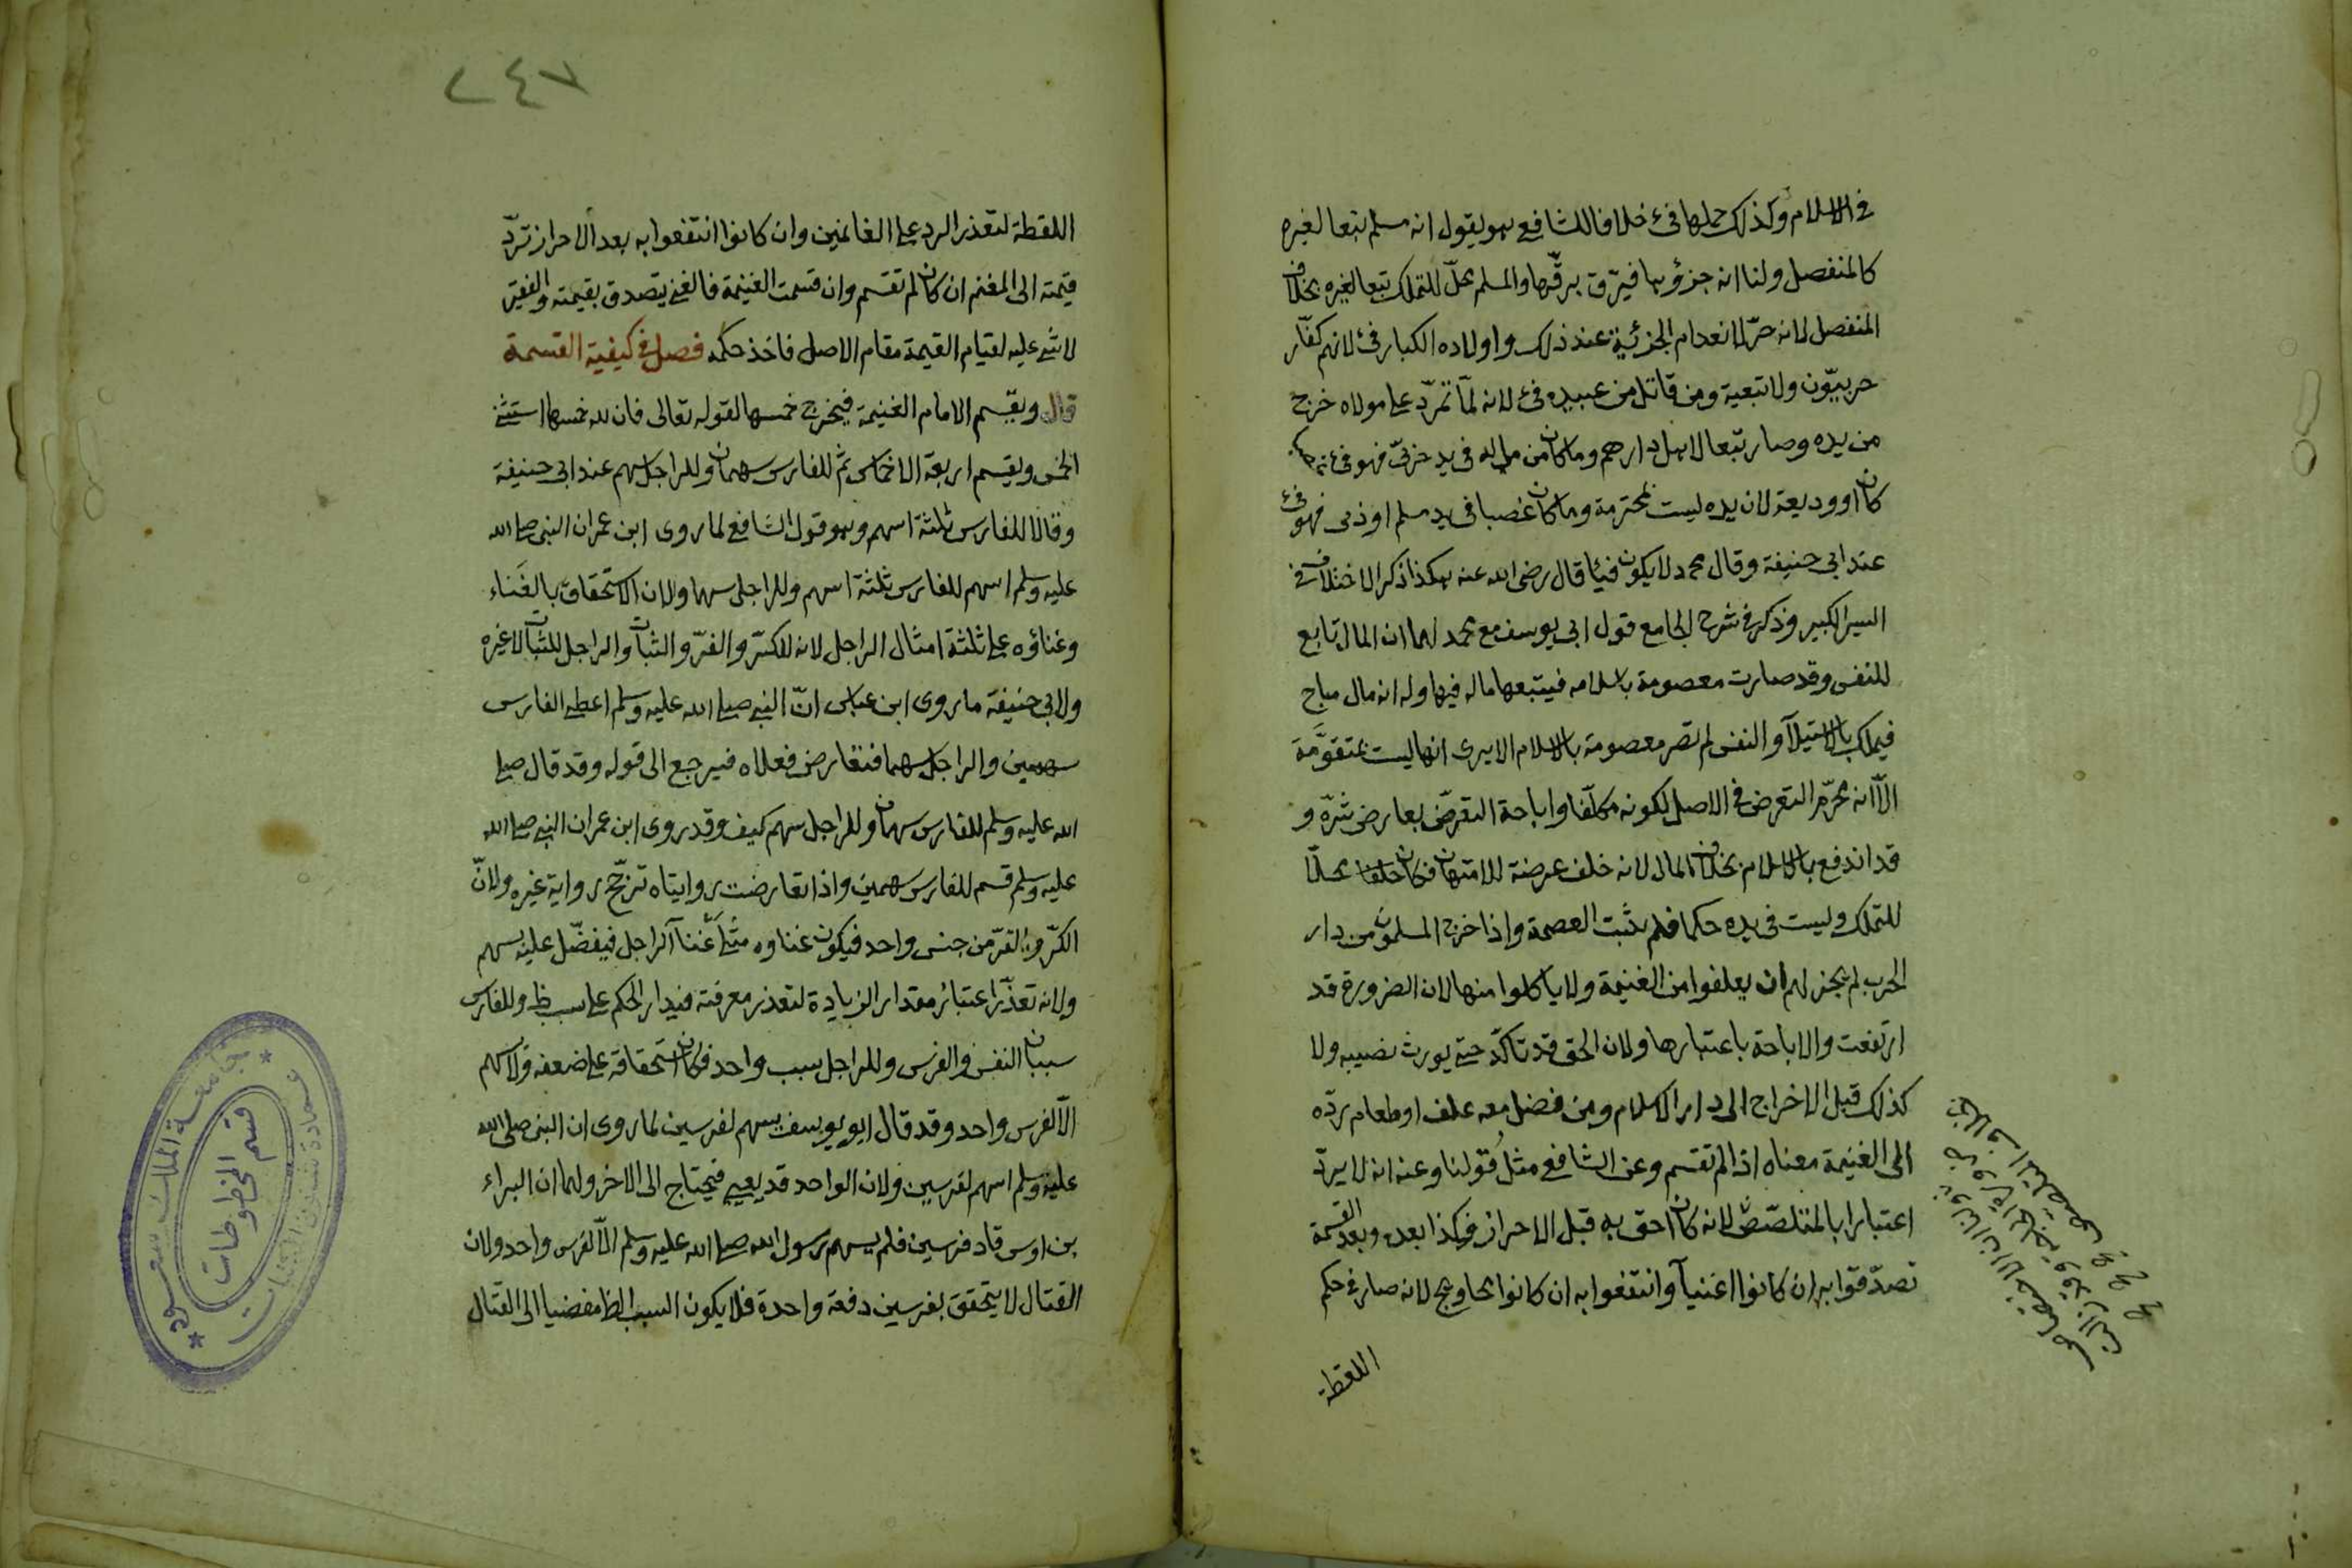 في الاسلام وكذلك حملها فئ خلافا للشافعي هو يقول انه مسلم تبعا لغيره
كالمنفصل ولنا انه جزؤها فيرق برقّها والمسلم محلّ للتملك تبعا لغيره بخلاف
المنفصل لانه حرّ لانعدام الجزئية عند ذلك واولاده الكبار فئ لانهم كفّار
حربيّون ولا تبعية ومن قاتل من عبيده فئ لانه لمّا تمرّد على مولاه خرج
من يده وصار تبعا لاهل دارهم وما كان من ماله في يد حربيّ فهو فئ
كان او وديعة لان يده ليست بمحترمة وما كان غصبا في يد مسلم او ذمي فهو فئ
عند ابي حنيفة وقال محمد لا يكون فيئا قال رضى الله عنه هكذا ذكر الاختلاف في
السير الكبير وذكر في شرح الجامع قول ابي يوسف مع محمد لهما ان المال تابع
للنفس وقد صارت معصومة باسلامه فيتبعها ماله فيها وله انه مال مباح
فيملك بالاستيلآ والنفس لم تصر معصومة بالاسلام الا يرى انها ليست بمتقوّمة
الّا انه محرّم التعرض في الاصل لكونه مكلّفا واباحة التعرّض بعارض شرّه و
قد اندفع بالاسلام بخلاف المال لانه خلف عرضة للامتهان فكان محلّا
للتملك وليست في يده حكما فلم يثبت العصمة واذا خرج المسلمون من دار
الحرب لم يجز لهم ان يعلفوا من الغنيمة ولا ياكلوا منها لان الضرورة قد
ارتفعت والاباحة باعتبارها ولان الحق قد تاكّد حتى يورث نصيبه ولا
كذلك قبل الاخراج الى دار الاسلام ومن فضل معه علف او طعام ردّه
الى الغنيمة معناه اذا لم تقسم وعن الشافعي مثل قولنا وعنه انه لا يردّ
اعتبارا بالمتلصّص لانه كان احق به قبل الاحراز فكذا بعده وبعد القسمة
تصدّقوا به ان كانوا اغنيآ وانتفعوا به ان كانوا محاويج لانه صار في حكم
اللقطة
٢٤٧
اللقطة لتعذر الرد على الغانمين وان كانوا انتفعوا به بعد الاحراز تردّ
قيمته الى المغنم ان كان لم تقسم وان قسمت الغنيمة فالغني يتصدق بقيمته والفقير
لا شئ عليه لقيام القيمة مقام الاصل فاخذ حكمه فصل في كيفية القسمة
قال ويقسم الامام الغنيمة فيخرج خمسها لقوله تعالى فان لله خمسها استثنى
الخمس ويقسم اربعة الاخماس ثمّ للفارس سهمان وللراجل سهم عند ابي حنيفة
وقالا للفارس ثلثة اسهم وهو قول الشافعي لما روى ابن عمر ان النبي صلى الله
عليه وسلم اسهم للفارس ثلثة اسهم وللراجل سهما ولان الاستحقاق بالغَناء
وغناؤه على ثلثة امثال الراجل لانه للكرّ والفرّ والثبات والراجل للثبات لا غيره
ولابي حنيفة ما روى ابن عباس انّ النبي صلى الله عليه وسلم اعطى الفارس
سهمين والراجل سهما فتعارض فعلاه فيرجع الى قوله وقد قال صلى
الله عليه وسلم للفارس سهمان وللراجل سهم كيف وقد روى ابن عمر ان النبي صلى الله
عليه وسلم قسم للفارس سهمين واذا تعارضت روايتاه ترجّح رواية غيره ولانّ
الكرّ والفرّ من جنس واحد فيكون غناوه مثلى غَنآ الراجل فيفضّل عليه بسهم
ولانه تعذّر اعتبار مقدار الزيادة لتعذر معرفته فيدار الحكم على سبب ظ وللفارس
سببان النفس والفرس وللراجل سبب واحد فكان استحقاقه على ضعفه ولا سهم
الّا لفرس واحد وقد قال ابو يوسف يسهم لفرسين لما روى ان النبي صلى الله
عليه وسلم اسهم لفرسين ولان الواحد قد يعيى فيحتاج الى الاخر ولهما ان البراء
بن اوس قاد فرسين فلم يسهم رسول الله صلى الله عليه وسلم الّا لفرس واحد ولان
القتال لا يتحقق بفرسين دفعة واحدة فلا يكون السبب الظ مفضيا الى القتال
جامعة الملك سعود
عمادة شئون المكتبات
قسم المخطوطات